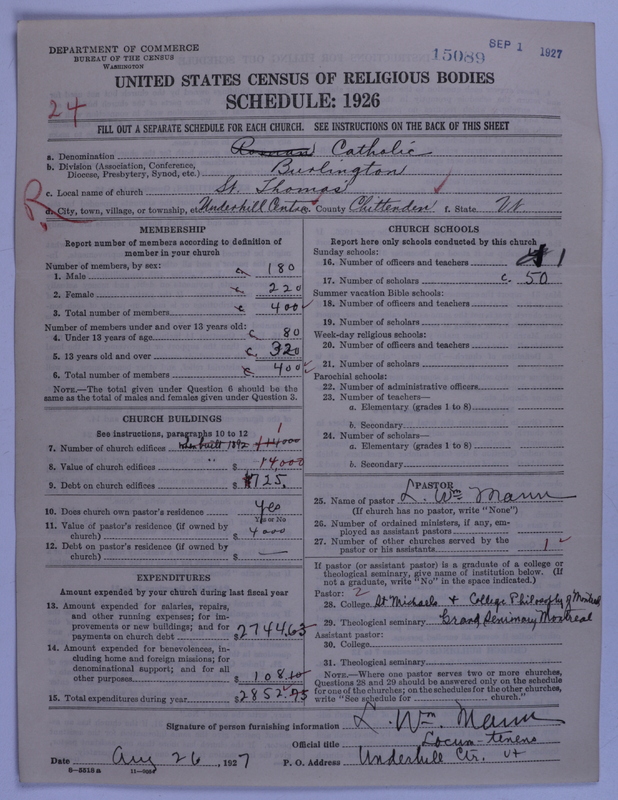 DEPARTMENT OF COMMERCE
BUREAU OF THE CENSUS
WASHINGTON
15089
SEP 1 1927
UNITED STATES CENSUS OF RELIGIOUS BODIES
SCHEDULE: 1926
24
FILL OUT A SEPARATE SCHEDULE FOR EACH CHURCH. SEE INSTRUCTIONS ON THE BACK OF THIS SHEET
a. Denomination Roman Catholic
b. Division (Association, Conference, Diocese, Presbytery, Synod, etc.) Burlington
c. Local name of church St. Thomas
R
d. City, town, village, or township, etc. Underhill Centre e. County Chittenden f. State Vt
MEMBERSHIP
Report number of members according to definition of member in your church
Number of members, by sex:
1. Male c. 180
2. Female c 220
3. Total number of members c 400
Number of members under and over 13 years old:
4. Under 13 years of age c. 80
5. 13 years old and over c. 320
6. Total number of members c. 400
NOTE.—The total given under Question 6 should be the same as the total of males and females given under Question 3.
CHURCH BUILDINGS
See instructions, paragraphs 10 to 12
7. Number of church edifices built 1892 1
8. Value of church edifices " $ 14,000
9. Debt on church edifices $ 1725.
10. Does church own pastor's residence Yes
Yes or No
11. Value of pastor's residence (if owned by church) $ 4000
12. Debt on pastor's residence (if owned by church) $ —
EXPENDITURES
Amount expended by your church during last fiscal year
13. Amount expended for salaries, repairs, and other running expenses; for improvements or new buildings; and for payments on church debt $ 2744.65
14. Amount expended for benevolences, including home and foreign missions; for denominational support; and for all other purposes $ 108.10
15. Total expenditures during year $ 2852.75
CHURCH SCHOOLS
Report here only schools conducted by this church
Sunday schools:
16. Number of officers and teachers 1
17. Number of scholars c. 50
Summer vacation Bible schools:
18. Number of officers and teachers
19. Number of scholars
Week-day religious schools:
20. Number of officers and teachers
21. Number of scholars
Parochial schools:
22. Number of administrative officers
23. Number of teachers—
a. Elementary (grades 1 to 8)
b. Secondary
24. Number of scholars—
a. Elementary (grades 1 to 8)
b. Secondary
PASTOR
25. Name of pastor L. Wm Mann
(If church has no pastor, write "None")
26. Number of ordained ministers, if any, employed as assistant pastors
27. Number of other churches served by the pastor or his assistants 1
If pastor (or assistant pastor) is a graduate of a college or theological seminary, give name of institution below. (If not a graduate, write "No" in the space indicated.)
Pastor: 2
28. College St Michaels + College Philosophy of Montreal
29. Theological seminary Grand Seminary Montreal
Assistant pastor:
30. College
31. Theological seminary
NOTE.—Where one pastor serves two or more churches, Questions 28 and 29 should be answered only on the schedule for one of the churches; on the schedules for the other churches, write "See schedule for church."
Signature of person furnishing information L. Wm. Mann
Official title Locum-tenens
Date Aug 26, 1927 P. O. Address Underhill Ctr. Vt
8—5518 a